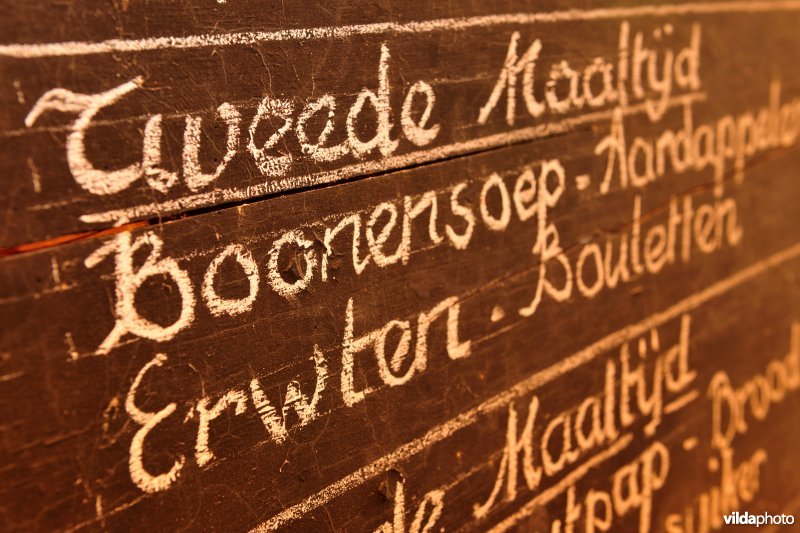 Tweede Maaltijd
Boonensoep - Aardappelen
Erwten - Bouletten
Maaltijd
Brood
suiker
vildaphoto